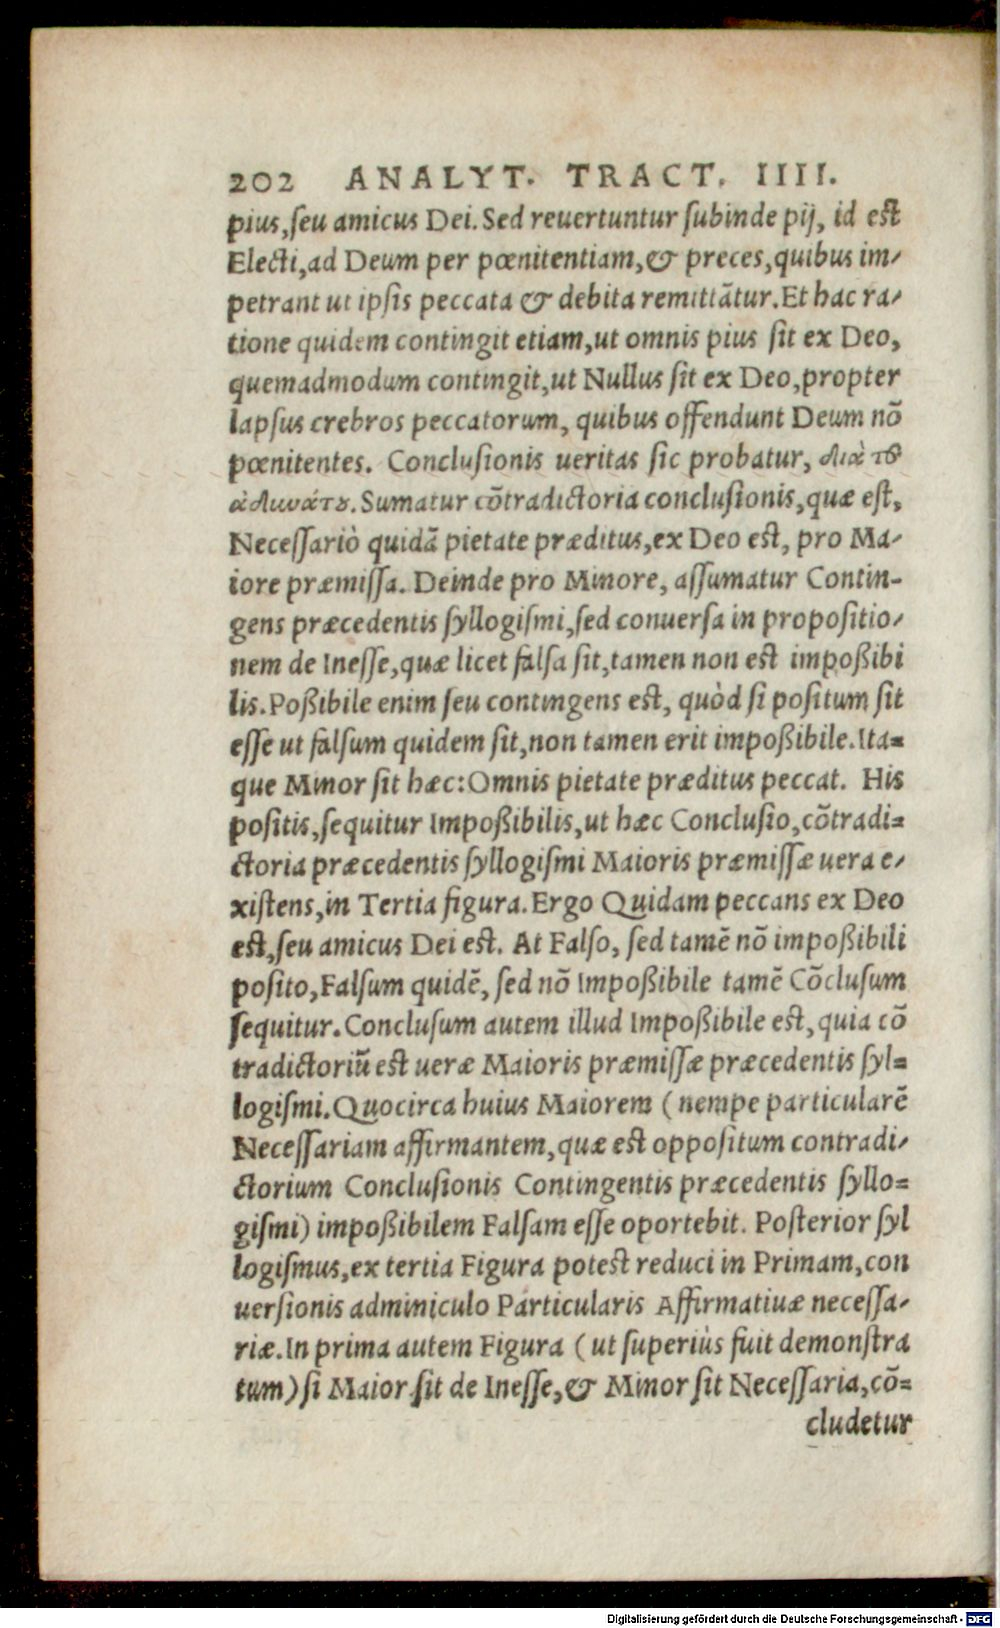 202 ANALYT. TRACT. IIII.
pius,ſeu amicus Dei. Sed reuertuntur ſubinde pij, id eſt
Electi,ad Deum per pœnitentiam,& preces,quibus im-
petrant ut ipſis peccata & debita remittãtur. Et hac ra-
tione quidem contingit etiam,ut omnis pius ſit ex Deo,
quemadmodum contingit,ut Nullus ſit ex Deo,propter
lapſus crebros peccatorum, quibus offendunt Deum nõ
pœnitentes. Concluſionis ueritas ſic probatur, διὰ τȣ
ἀδιυάτȣ. Sumatur cõtradictoria concluſionis,quæ eſt,
Neceſſariò quidã pietate præditus,ex Deo eſt, pro Ma-
iore præmiſſa. Deinde pro Minore, aſſumatur Contin-
gens præcedentis ſyllogiſmi,ſed conuerſa in propoſitio-
nem de Ineſſe,quæ licet falſa ſit,tamen non eſt impoßibi
lis. Poßibile enim ſeu contingens eſt, quòd ſi poſitum ſit
eſſe ut falſum quidem ſit,non tamen erit impoßibile. Ita=
que Minor ſit hæc: Omnis pietate præditus peccat. His
poſitis,ſequitur Impoßibilis,ut hæc Concluſio,cõtradi=
ctoria præcedentis ſyllogiſmi Maioris præmiſſæ uera e-
xiſtens,in Tertia figura. Ergo Quidam peccans ex Deo
eſt,ſeu amicus Dei eſt. At Falſo, ſed tamẽ nõ impoßibili
poſito,Falſum quidẽ, ſed nõ Impoßibile tamẽ Cõcluſum
ſequitur. Concluſum autem illud Impoßibile eſt,quia cõ
tradictoriũ eſt ueræ Maioris præmiſſæ præcedentis ſyl=
logiſmi. Quocirca huius Maiorem (nempe particularẽ
Neceſſariam affirmantem,quæ eſt oppoſitum contradi-
ctorium Concluſionis Contingentis præcedentis ſyllo=
giſmi) impoßibilem Falſam eſſe oportebit. Poſterior ſyl
logiſmus,ex tertia Figura poteſt reduci in Primam,con
uerſionis adminiculo Particularis Affirmatiuæ neceſſa-
riæ. In prima autem Figura (ut ſuperiùs fuit demonſtra
tum) ſi Maior ſit de Ineſſe,& Minor ſit Neceſſaria,cõ=
cludetur
Digitalisierung gefördert durch die Deutsche Forschungsgemeinschaft - DFG